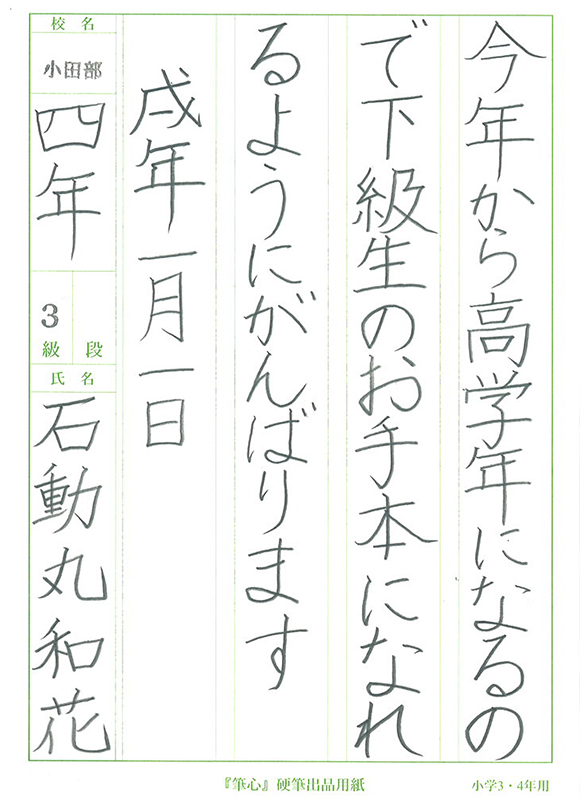 今年から高学年になるの
で下級生のお手本になれ
るようにがんばります
戌年一月一日
校名
小田部
四年
3
級 段
氏名
石動丸和花
『筆心』硬筆出品用紙
小学3・4年用